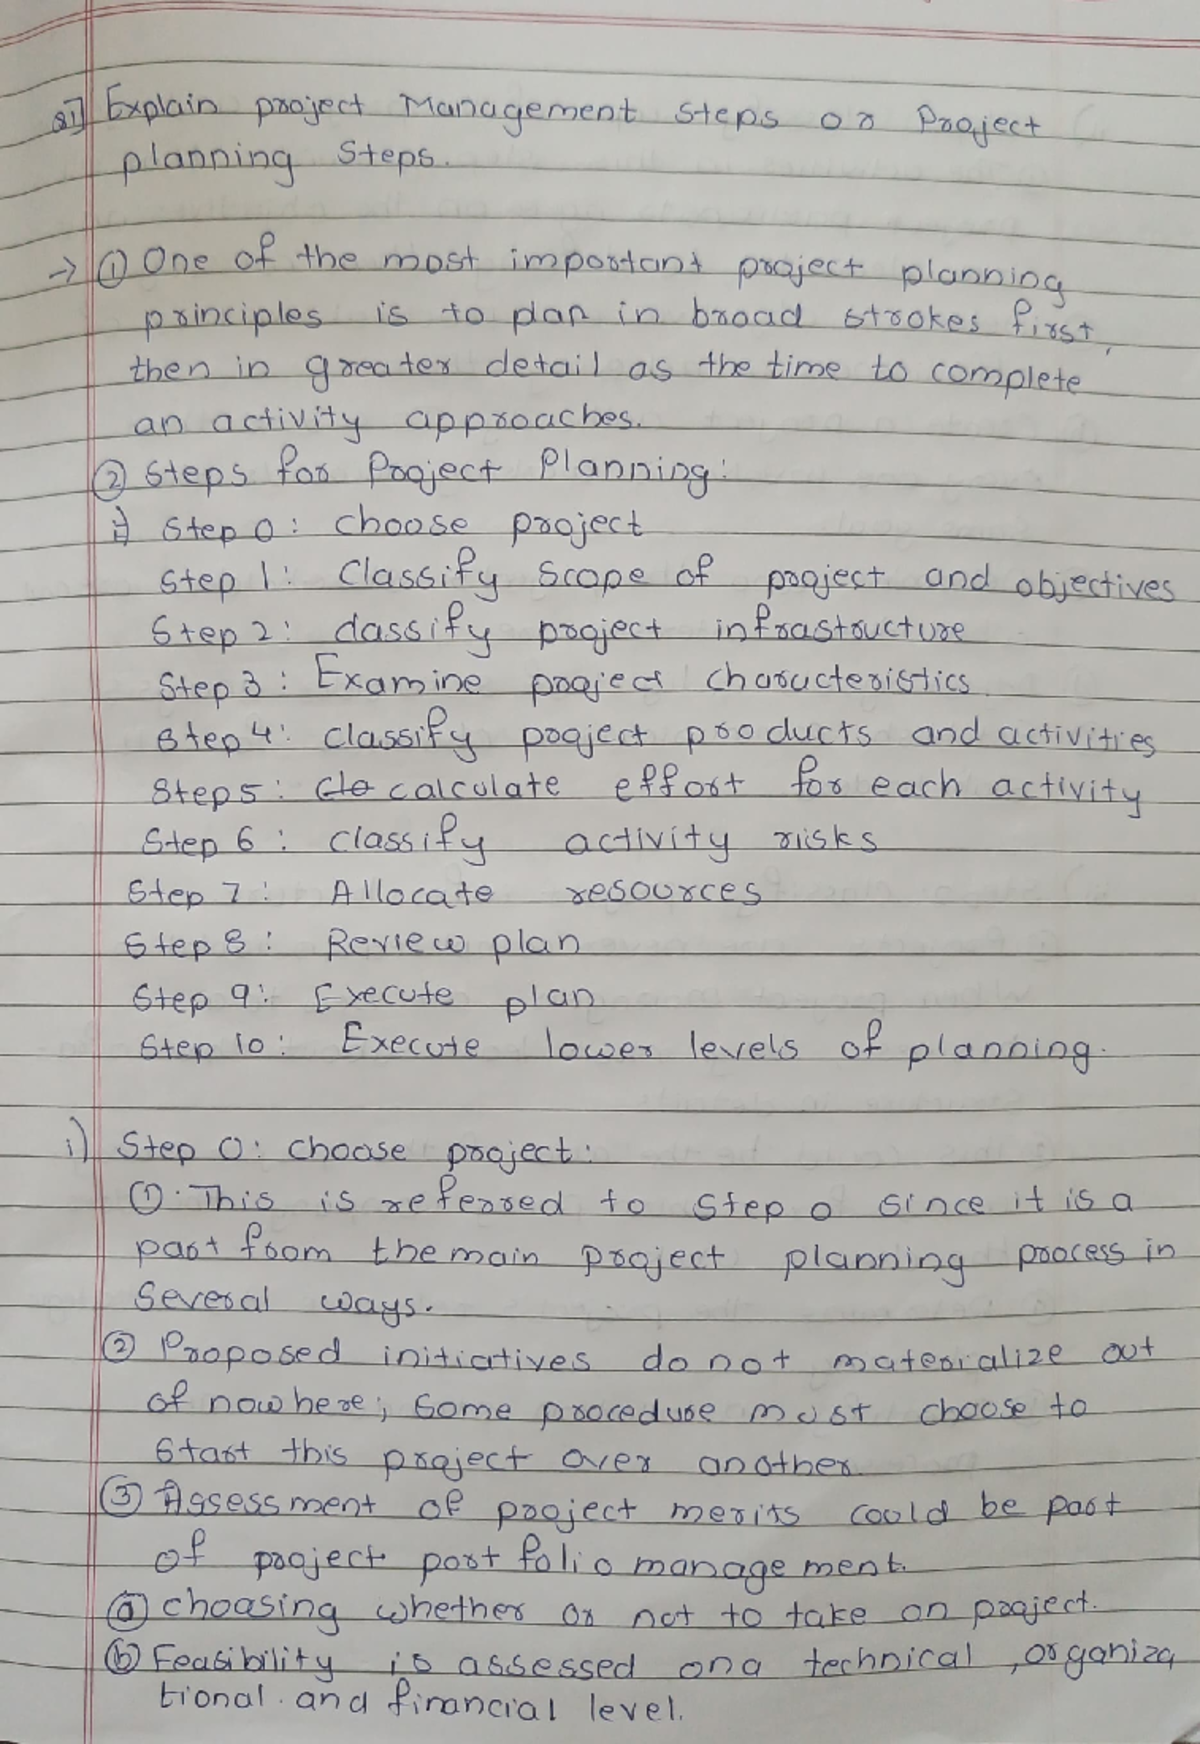 Q1] Explain project Management Steps or Project
planning Steps.
→ ① One of the most important project planning
principles is to plan in broad strokes first,
then in greater detail as the time to complete
an activity approaches.
② Steps for Project Planning:
i) Step 0: choose project
Step 1: Classify scope of project and objectives
Step 2: classify project infrastucture
Step 3: Examine project characteristics
Step 4: classify project products and activities
Step 5: calculate effort for each activity
Step 6: classify activity risks
Step 7: Allocate resources
Step 8: Review plan
Step 9: Execute plan
Step 10: Execute lower levels of planning.
i) Step 0: choose project:
① This is referred to step 0 since it is a
part from the main project planning process in
several ways.
② Proposed initiatives do not materialize out
of nowhere; some procedure must choose to
start this project over another.
③ Assessment of project merits could be part
of project portfolio management.
ⓐ choosing whether or not to take on project.
ⓑ Feasibility is assessed on a technical, organiza
tional and financial level.